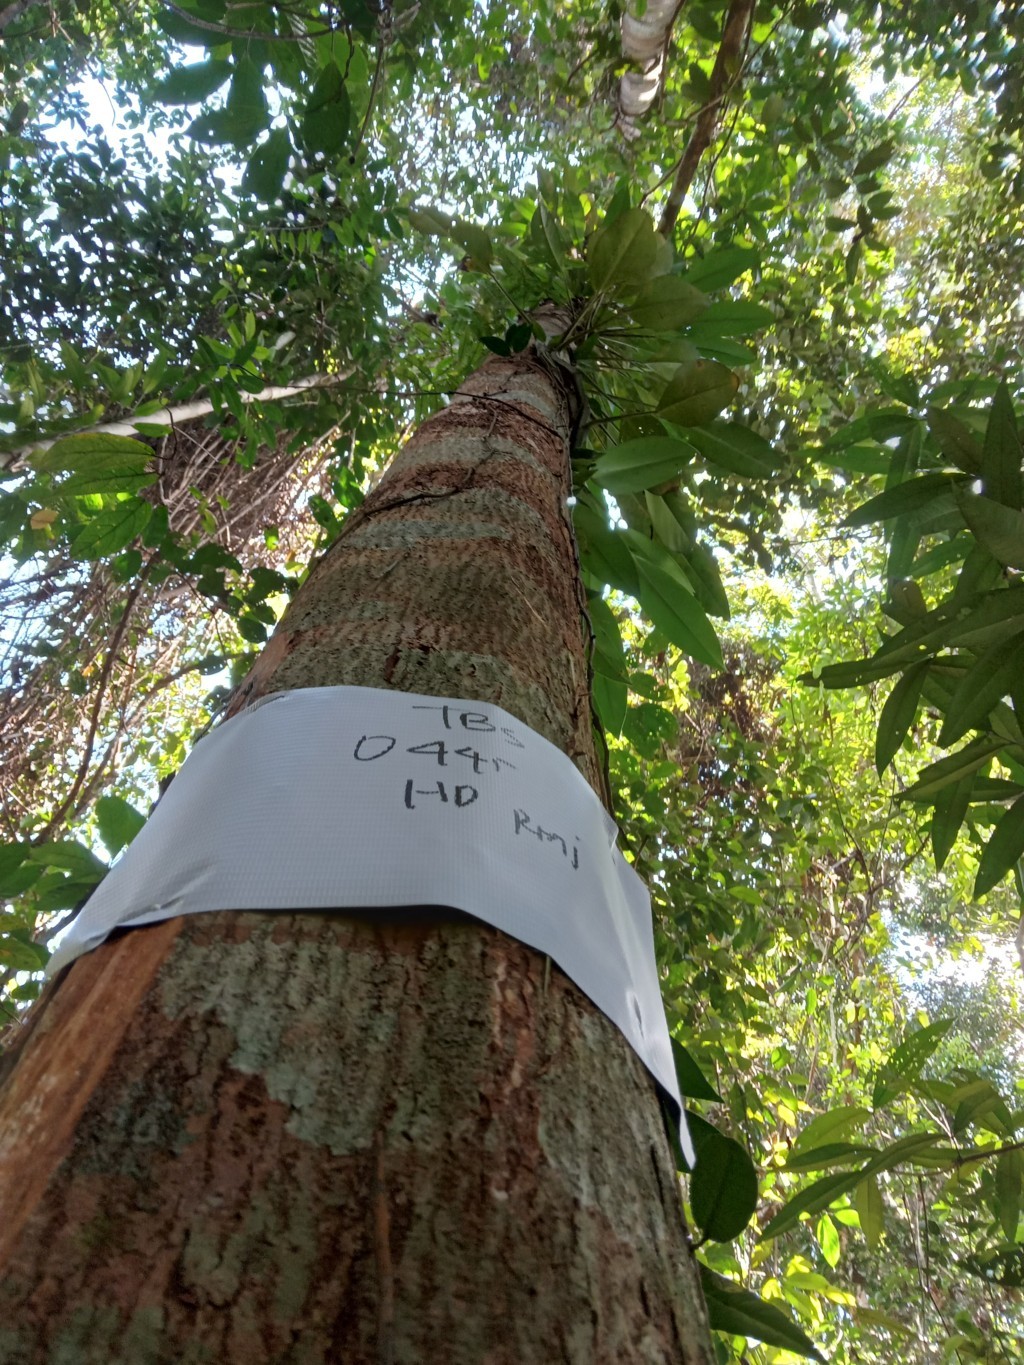 TBS
0445
HD
Rmj